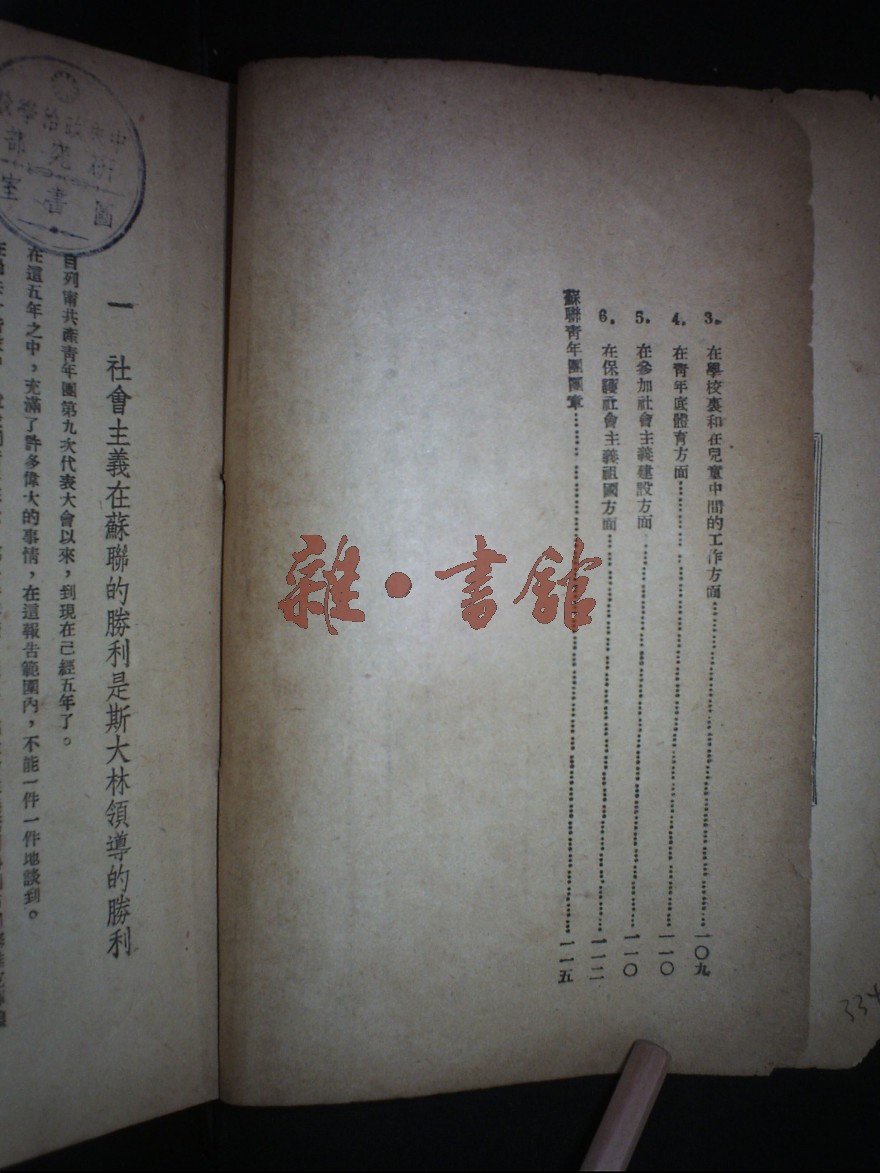 3. 在學校裏和在兒童中間的工作方面……一〇九
4. 在靑年底體育方面……一一〇
5. 在參加社會主義建設方面……一一〇
6. 在保護社會主義祖國方面……一一二
蘇聯靑年團團章……一一五
雜·書館
334
圖書室
一 社會主義在蘇聯的勝利是斯大林領導的勝利
自列甯共產靑年團第九次代表大會以來，到現在已經五年了。
在這五年之中，充滿了許多偉大的事情，在這報告範圍內，不能一件一件地談到。